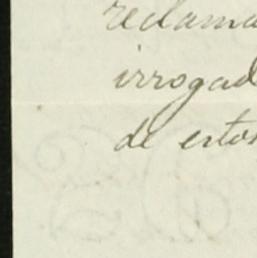 reclama
irrogad
de estos